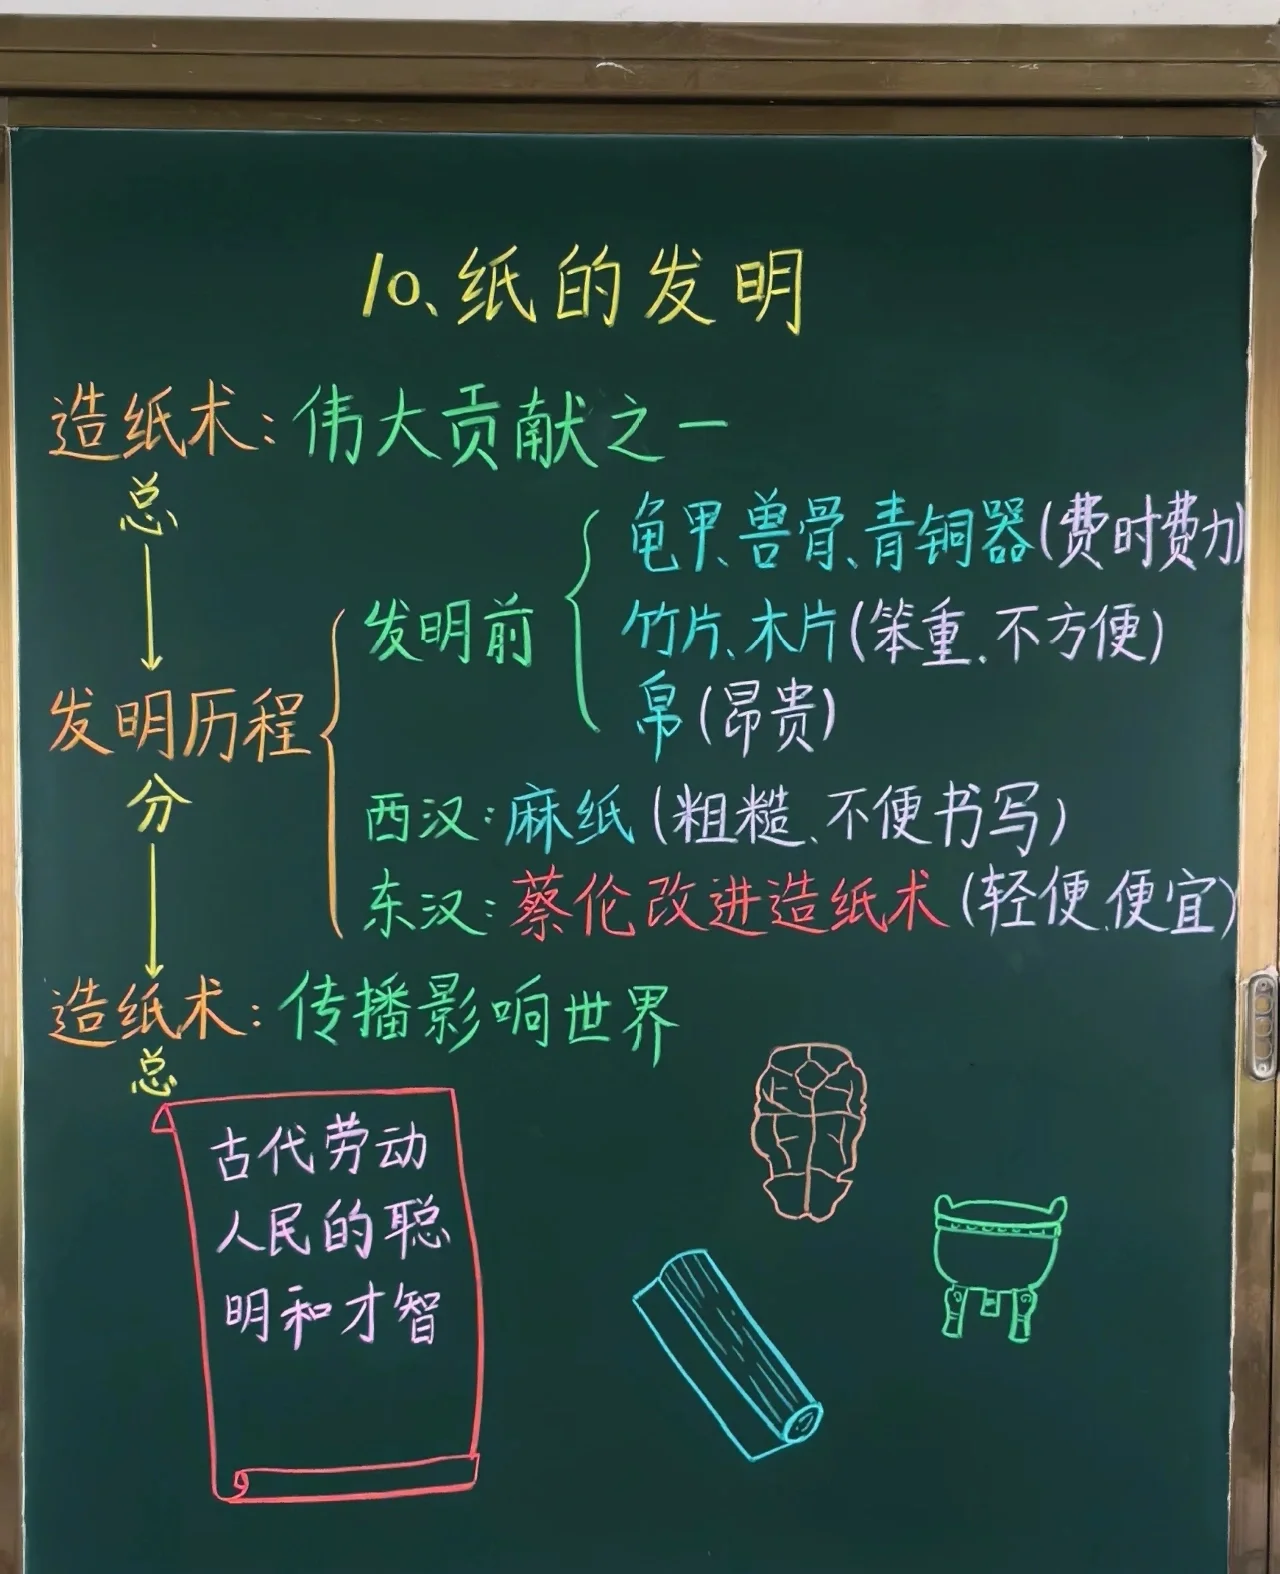 10、纸的发明
造纸术：伟大贡献之一
总
龟甲、兽骨、青铜器(费时费力)
发明前
竹片、木片(笨重、不方便)
帛(昂贵)
发明历程
分
西汉：麻纸(粗糙、不便书写)
东汉：蔡伦改进造纸术(轻便、便宜)
造纸术：传播影响世界
总
古代劳动
人民的聪
明和才智